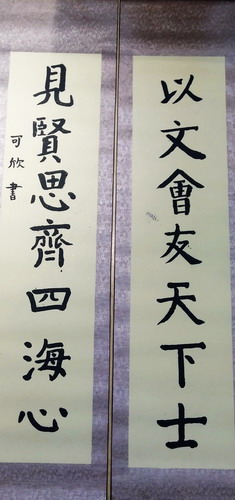 以文會友天下士
見賢思齊四海心
可欣書